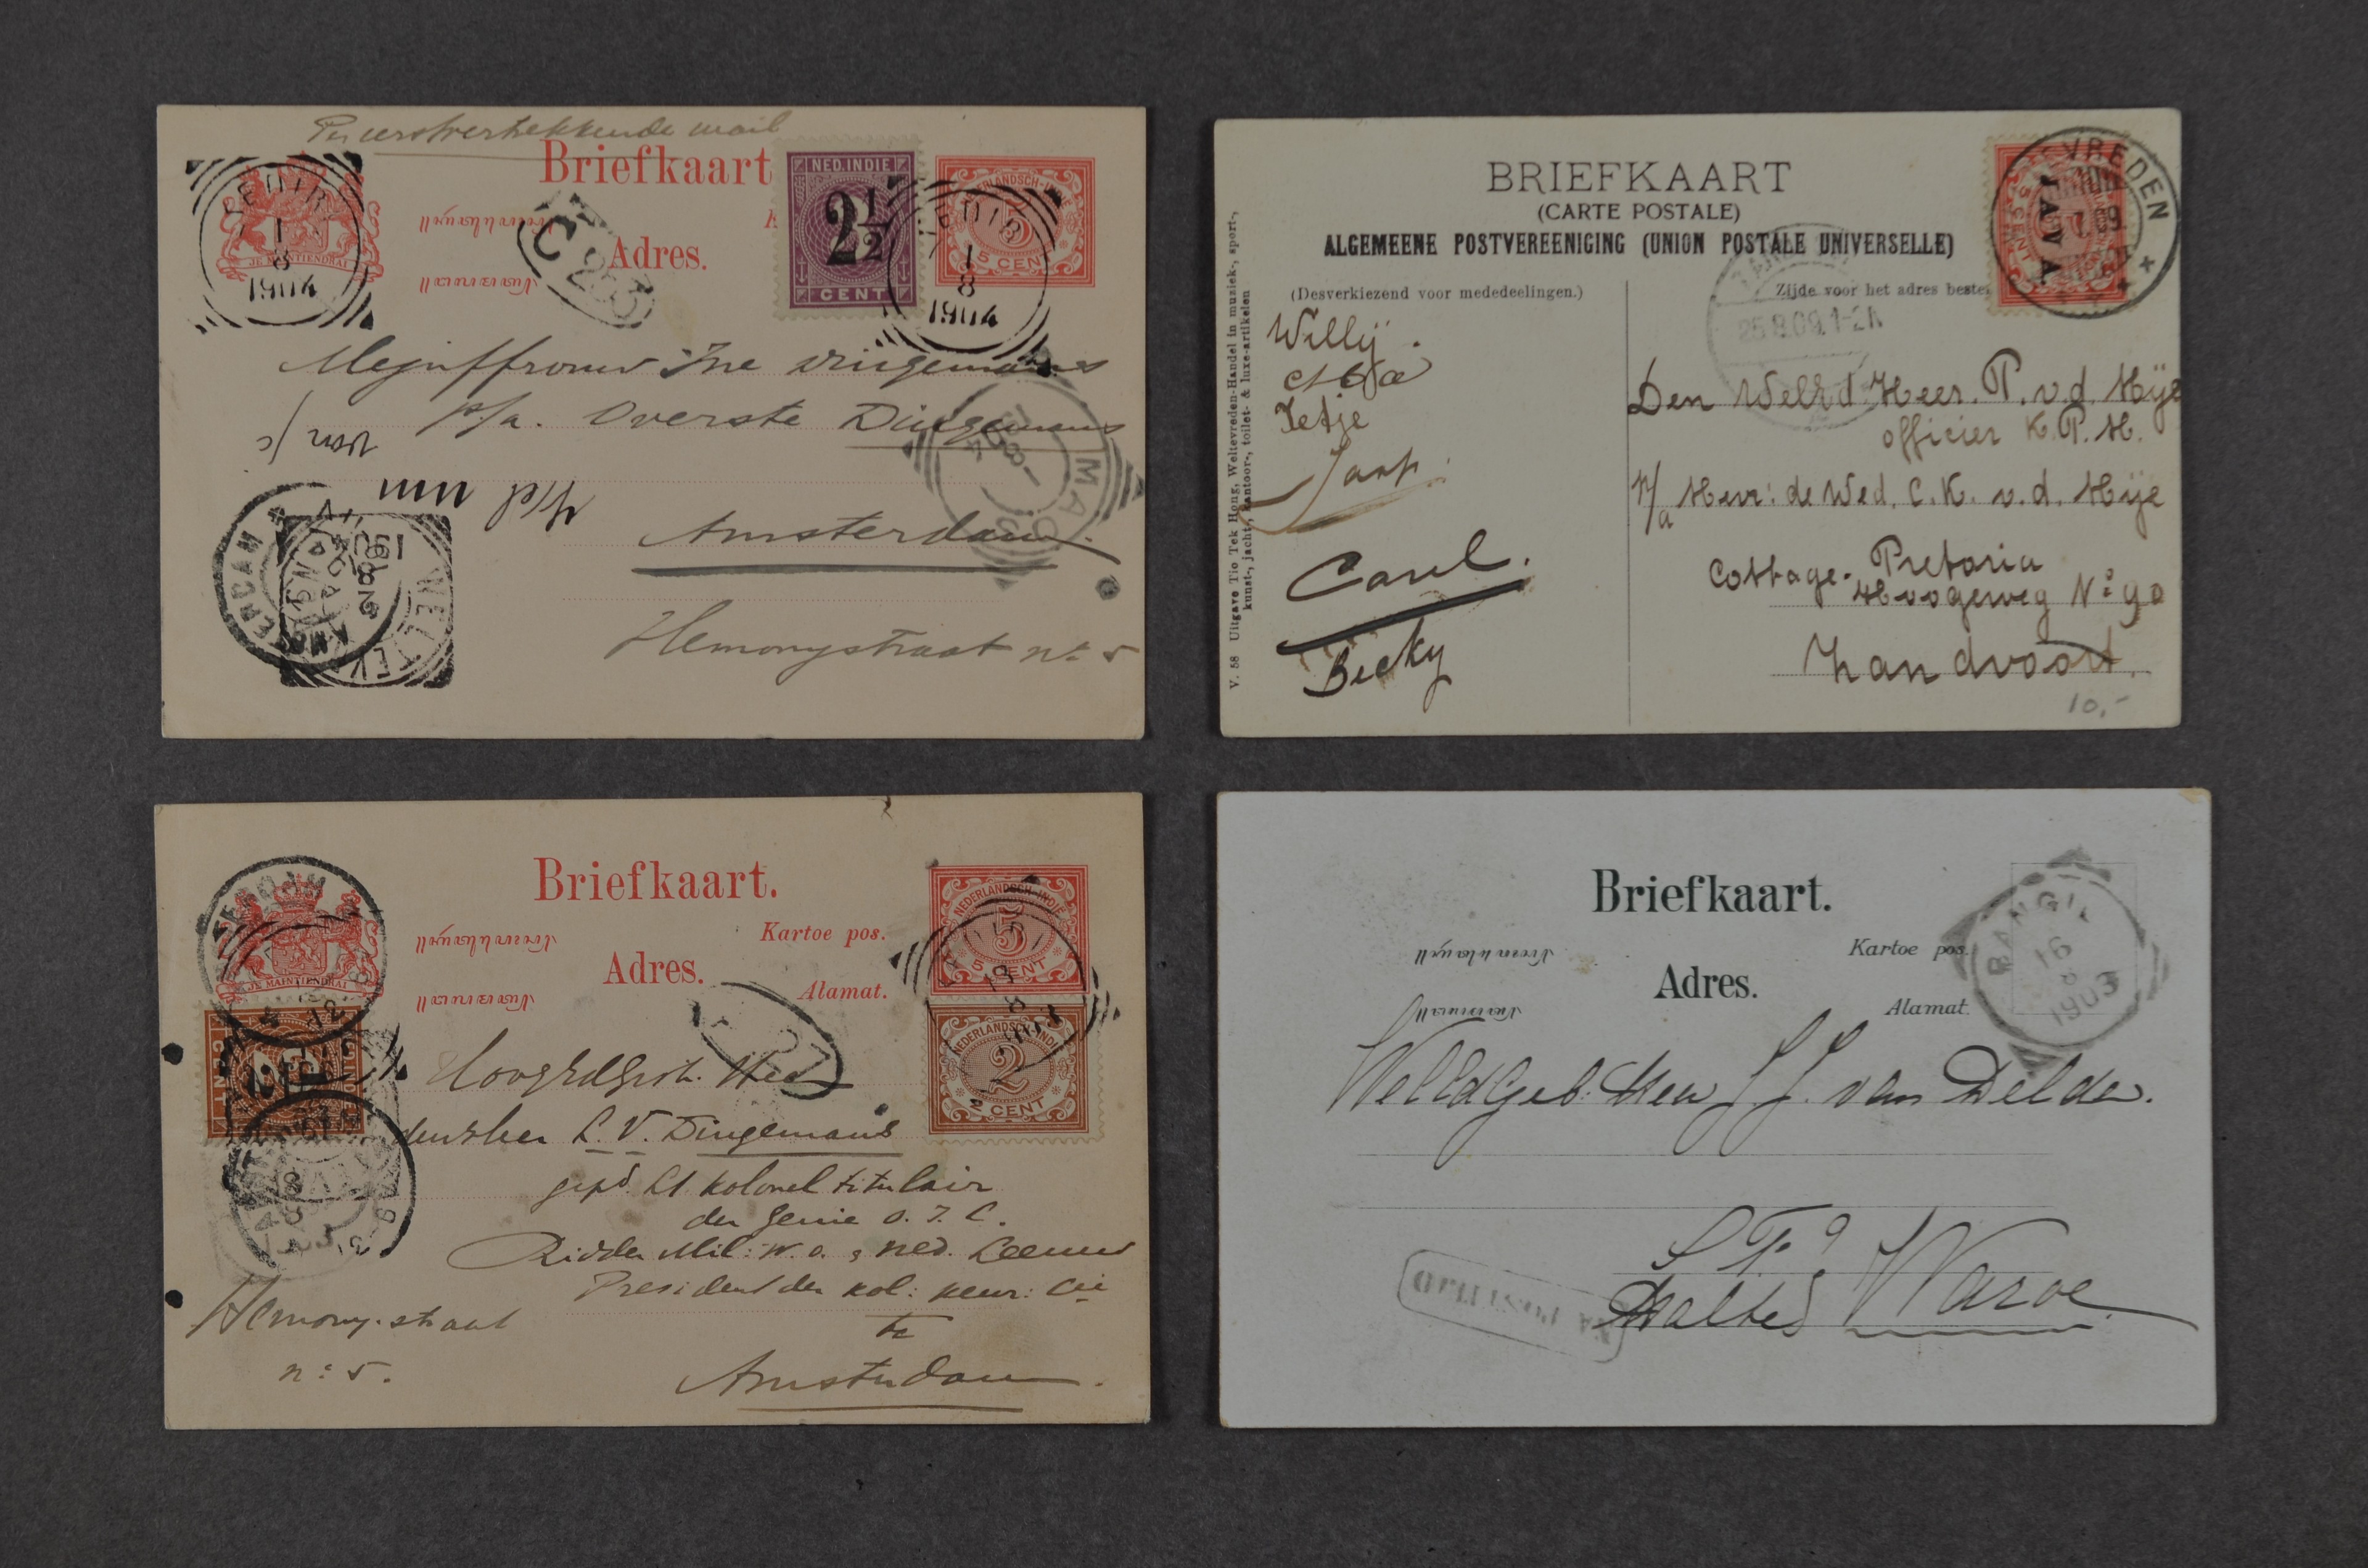 Per eerstvertrekkende mail
Briefkaart
Adres.
JE MAINTIENDRAI
NED.INDIE
2½
CENT
5
5 CENT
KEDIRI
1
8
1904
KEDIRI
1
8
1904
Mejuffrouw Ine Dingemans
p/a. Overste Dingemans
van
Amsterdam.
Hemonystraat no 5
WELTEVREDEN
BRIEFKAART
(CARTE POSTALE)
ALGEMEENE POSTVEREENIGING (UNION POSTALE UNIVERSELLE)
(Desverkiezend voor mededeelingen.)
Zijde voor het adres beste
V. 58 Uitgave Tio Tek Hong, Weltevreden-Handel in muziek-, sport-,
kunst-, jacht-, kantoor-, toilet- & luxe-artikelen
VREDEN
JAVA
5 CENT
25.8.09.1-2N
Willÿ.
Jetje
Jaap.
Carel.
Becky
Den WelEd. Heer. P. v.d. Hÿe
officier K.P.M.
p/a Mevr: de Wed. C.K. v.d. Hÿe
Cottage. Pretoria
Hoogeweg No 90
Zandvoort.
10,-
Briefkaart.
Kartoe pos.
Adres.
Alamat.
JE MAINTIENDRAI
NEDERLANDSCH-INDIE
5
5 CENT
NEDERLANDSCH-INDIE
2
2 CENT
HoogEdGestr. Heer
den Heer L. V. Dingemans
gepd Lt kolonel titulair
der Genie O. I. L.
Ridder Mil: W. O. & Ned. Leeuw
President der kol: keur: Cie
te
Amsterdam.
Hemony-straat
no 5.
Briefkaart.
Kartoe pos.
Adres.
Alamat.
BANGIL
16
8
1903
WelEdGeb: Heer J. J. van Delden.
S. F.
Waroe
NA POSTTIJD